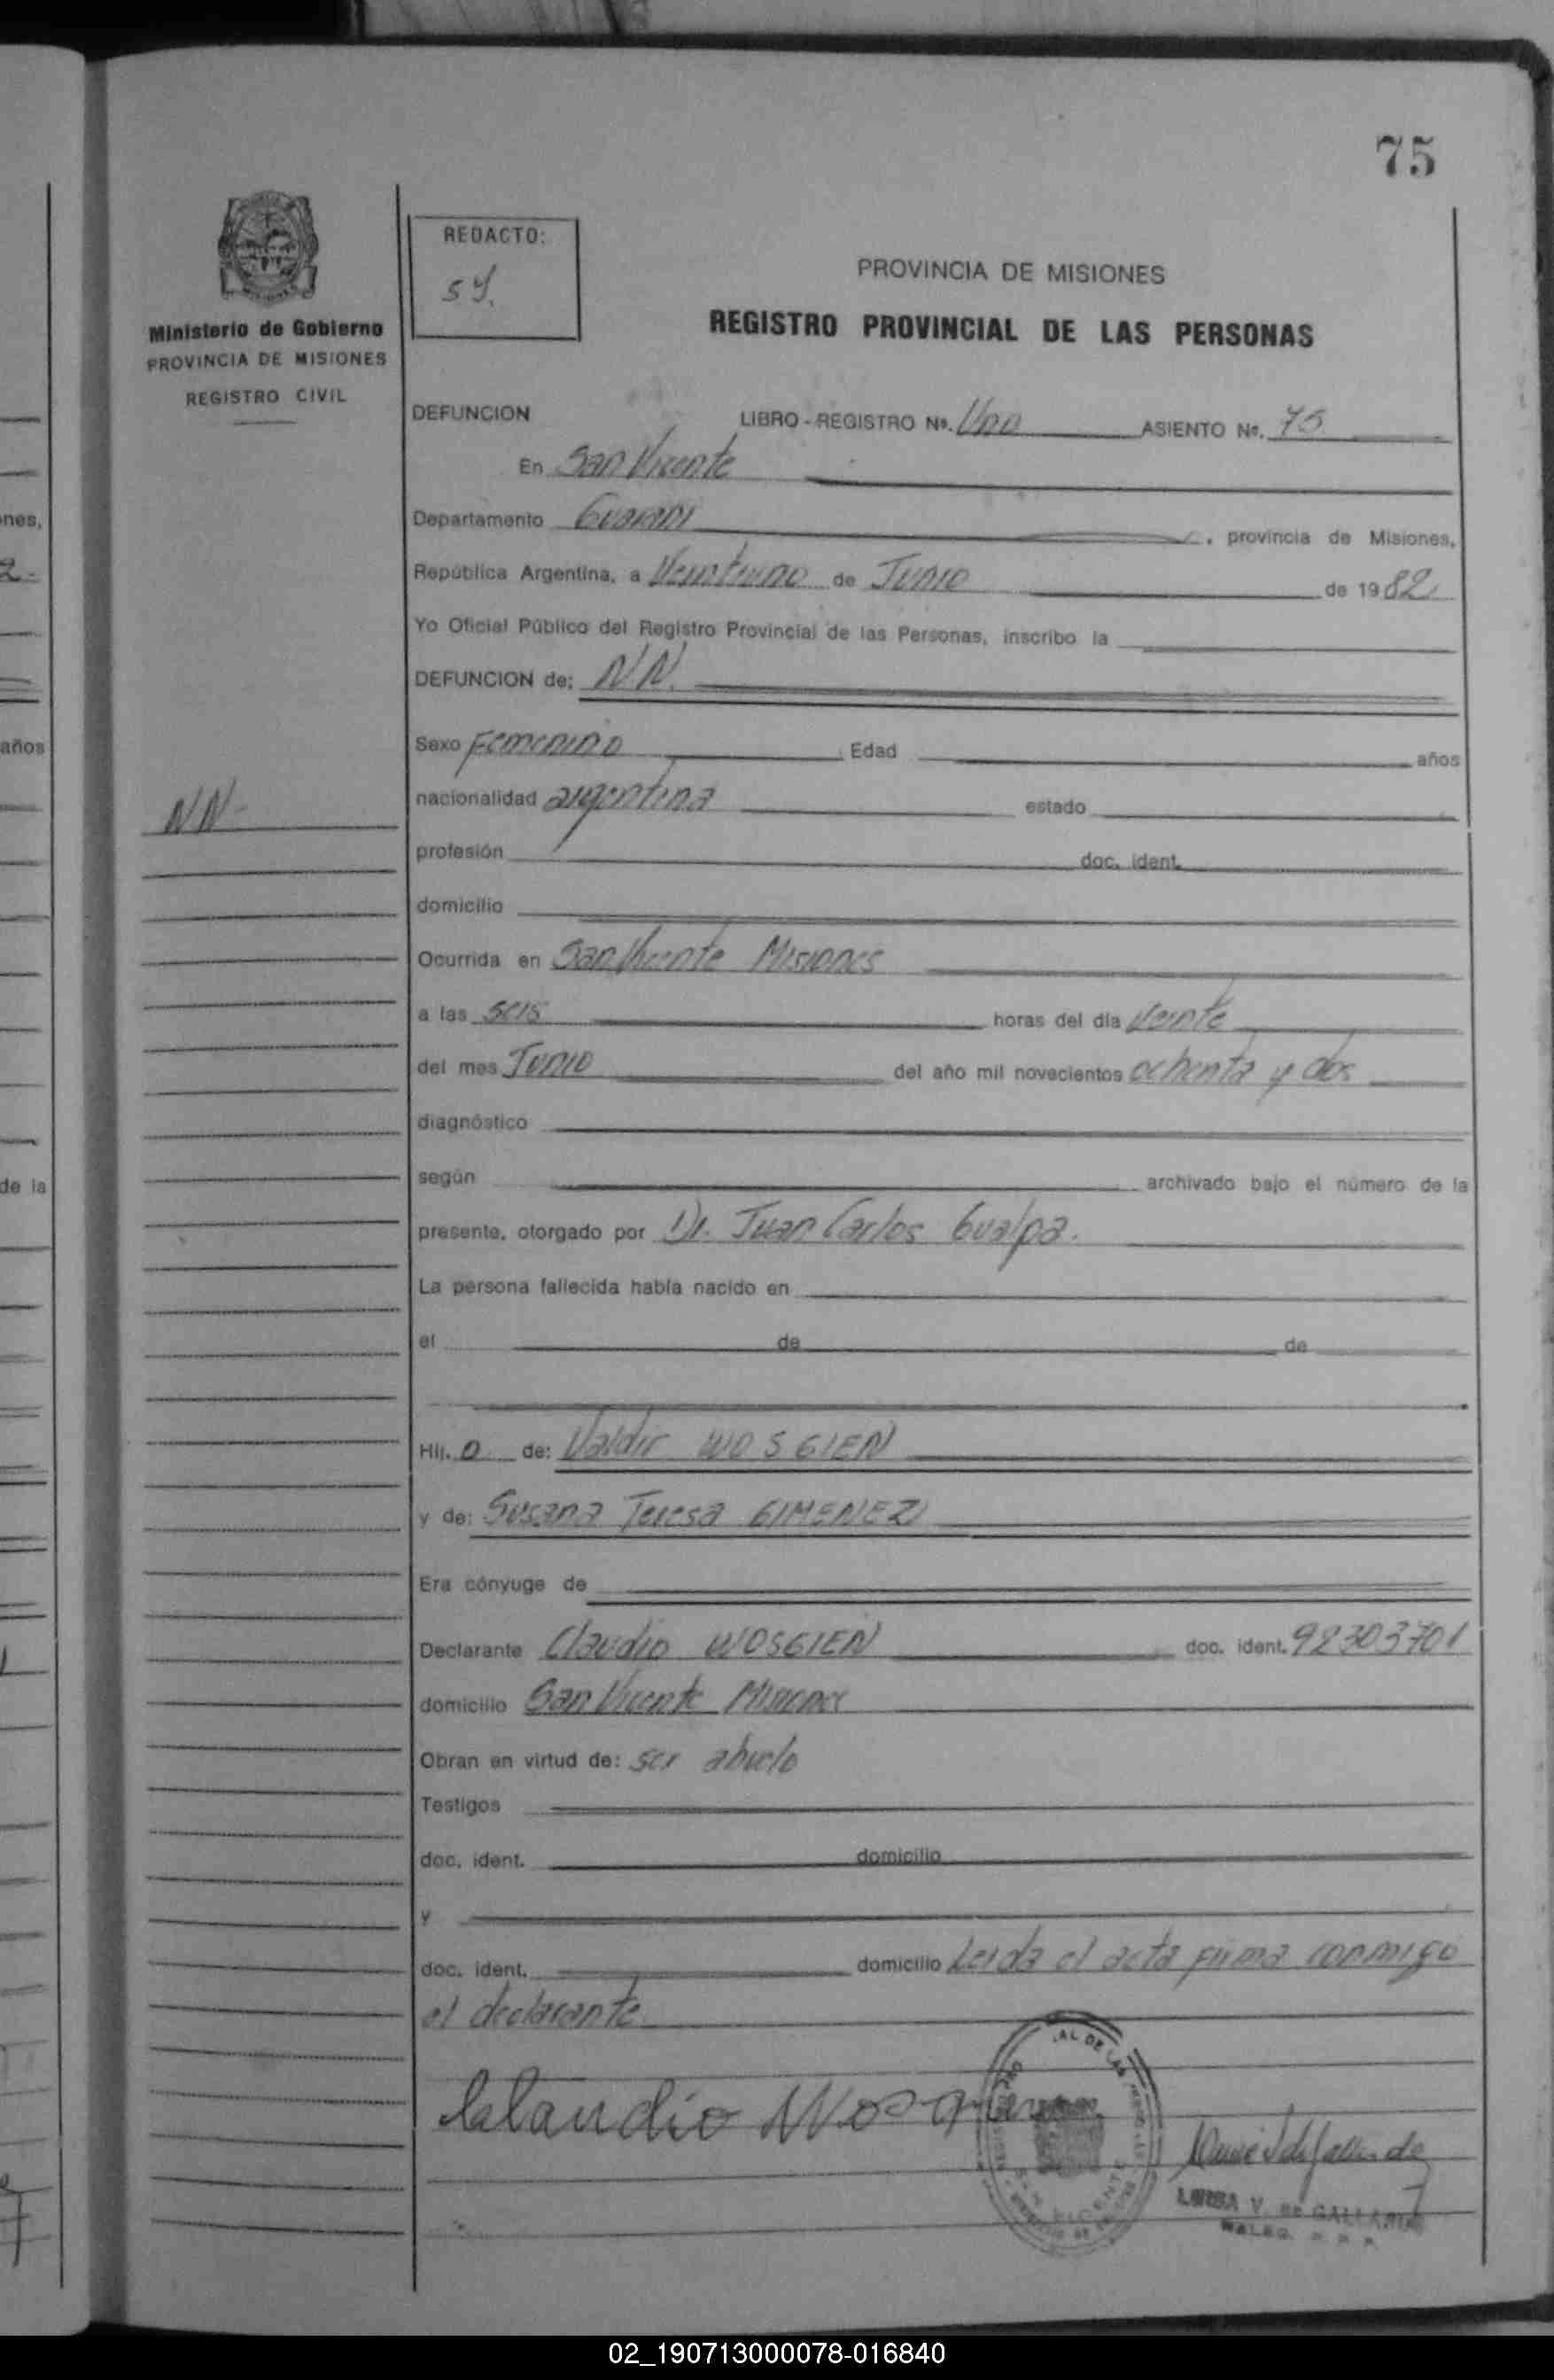 75
REDACTO:
Ministerio de Gobierno
PROVINCIA DE MISIONES
REGISTRO CIVIL
PROVINCIA DE MISIONES
REGISTRO PROVINCIAL DE LAS PERSONAS
DEFUNCION LIBRO - REGISTRO Nº. Uno ASIENTO Nº. 75
En San Vicente
Departamento Guaraní , provincia de Misiones,
República Argentina, a Veintiuno de Junio de 1982
Yo Oficial Público del Registro Provincial de las Personas, inscribo la
DEFUNCION de: NN.
Sexo Femenino Edad años
nacionalidad argentina estado
NN-
profesión doc. ident.
domicilio
Ocurrida en San Vicente Misiones
a las seis horas del día veinte
del mes Junio del año mil novecientos ochenta y dos
diagnóstico
según archivado bajo el número de la
presente, otorgado por Dr. Juan Carlos Gualpa.
La persona fallecida había nacido en
el de de
Hij. o de: Valdir WOSGIEN
y de: Susana Teresa GIMENEZ
Era cónyuge de
Declarante Claudio WOSGIEN doc. ident. 92303701
domicilio San Vicente Misiones
Obran en virtud de: ser abuelo
Testigos
doc. ident. domicilio
y
doc. ident. domicilio Leida el acta firma conmigo
el declarante
Claudio Wosgien
SAN VICENTE
LUISA V. de GALLARDO
nes,
2-
años
de la
02_190713000078-016840